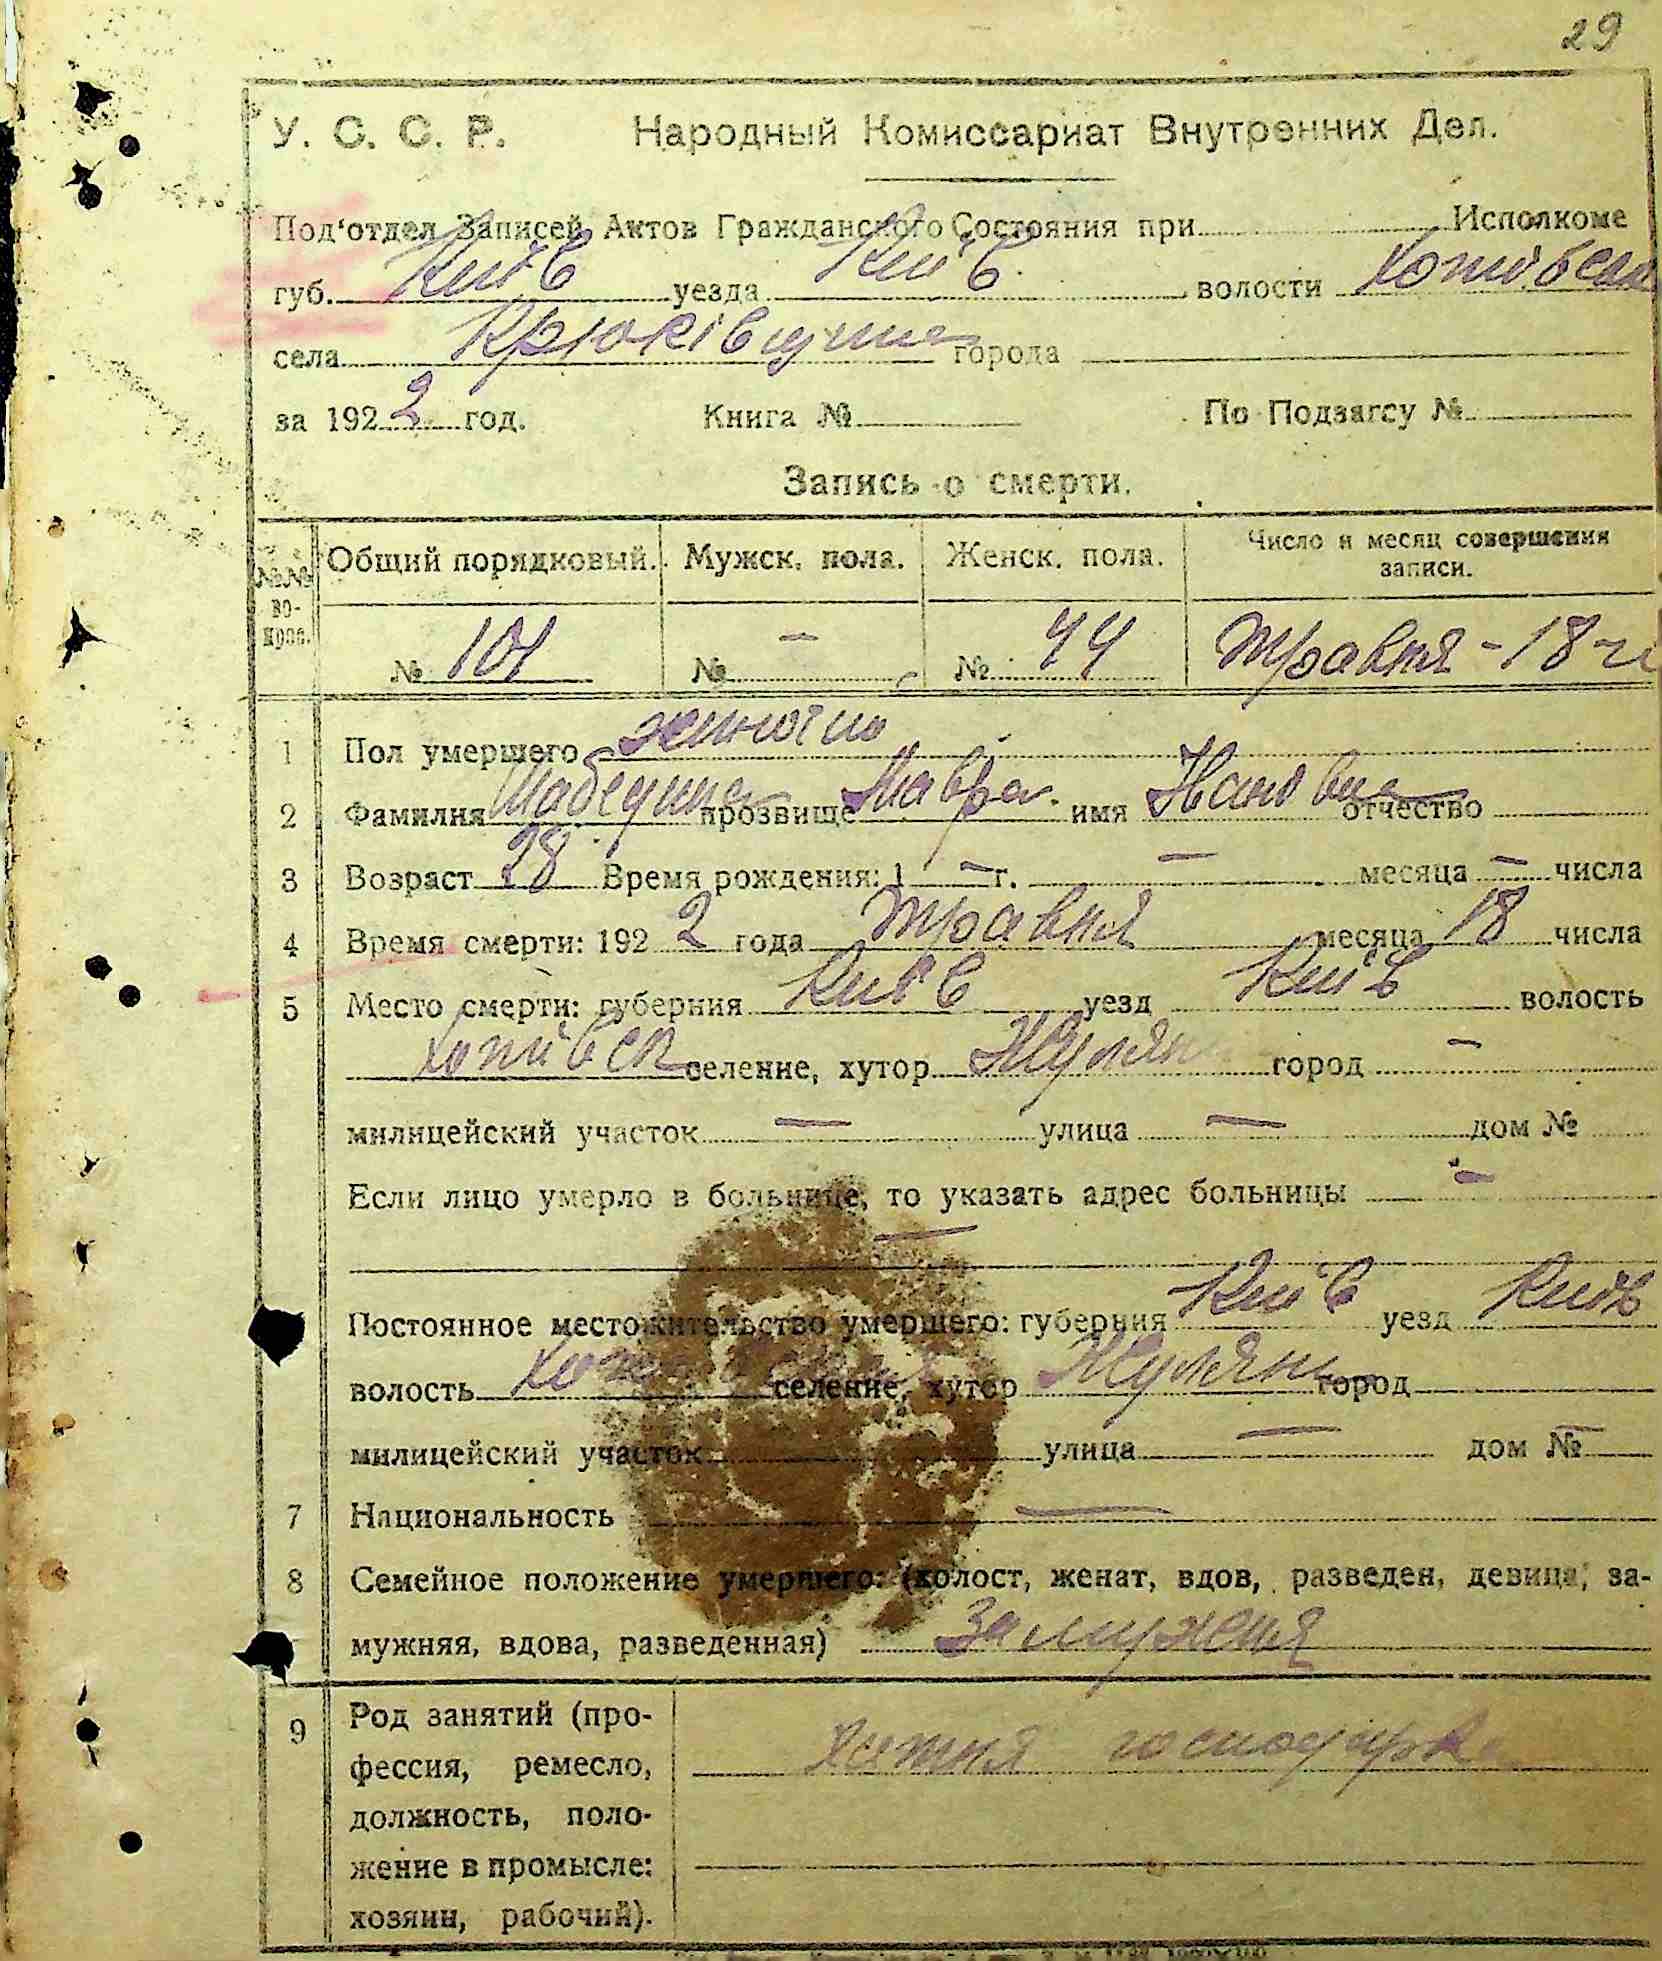 29
У. С. С. Р. Народный Комиссариат Внутренних Дел.
Под‘отдел Записей Актов Гражданского Состояния при Исполкоме
губ. Київ уезда Київ волости Хотівськ
села Крюківщина города
за 1922 год. Книга № По Подзагсу №
Запись о смерти.
№№ вопрос. Общий порядковый. Мужск. пола. Женск. пола. Число и месяц совершения записи.
№ 101 № — № 44 Травня - 18-
1 Пол умершего
2 Фамилия прозвище Мавра имя отчество
3 Возраст 28 Время рождения: 1 — г. — месяца — числа
4 Время смерти: 1922 года Травня месяца 18 числа
5 Место смерти: губерния Київ уезд Київ волость
Хотівськ селение, хутор Жуляни город —
милицейский участок — улица — дом №
Если лицо умерло в больнице, то указать адрес больницы —
—
Постоянное местожительство умершего: губерния Київ уезд Київ
волость селение, хутор Жуляни город
милицейский участок улица — дом № —
7 Национальность —
8 Семейное положение умершего: (холост, женат, вдов, разведен, девица, за-
мужняя, вдова, разведенная) Замужня
9 Род занятий (про-
фессия, ремесло, хатня господарка
должность, поло-
жение в промысле:
хозяин, рабочий).